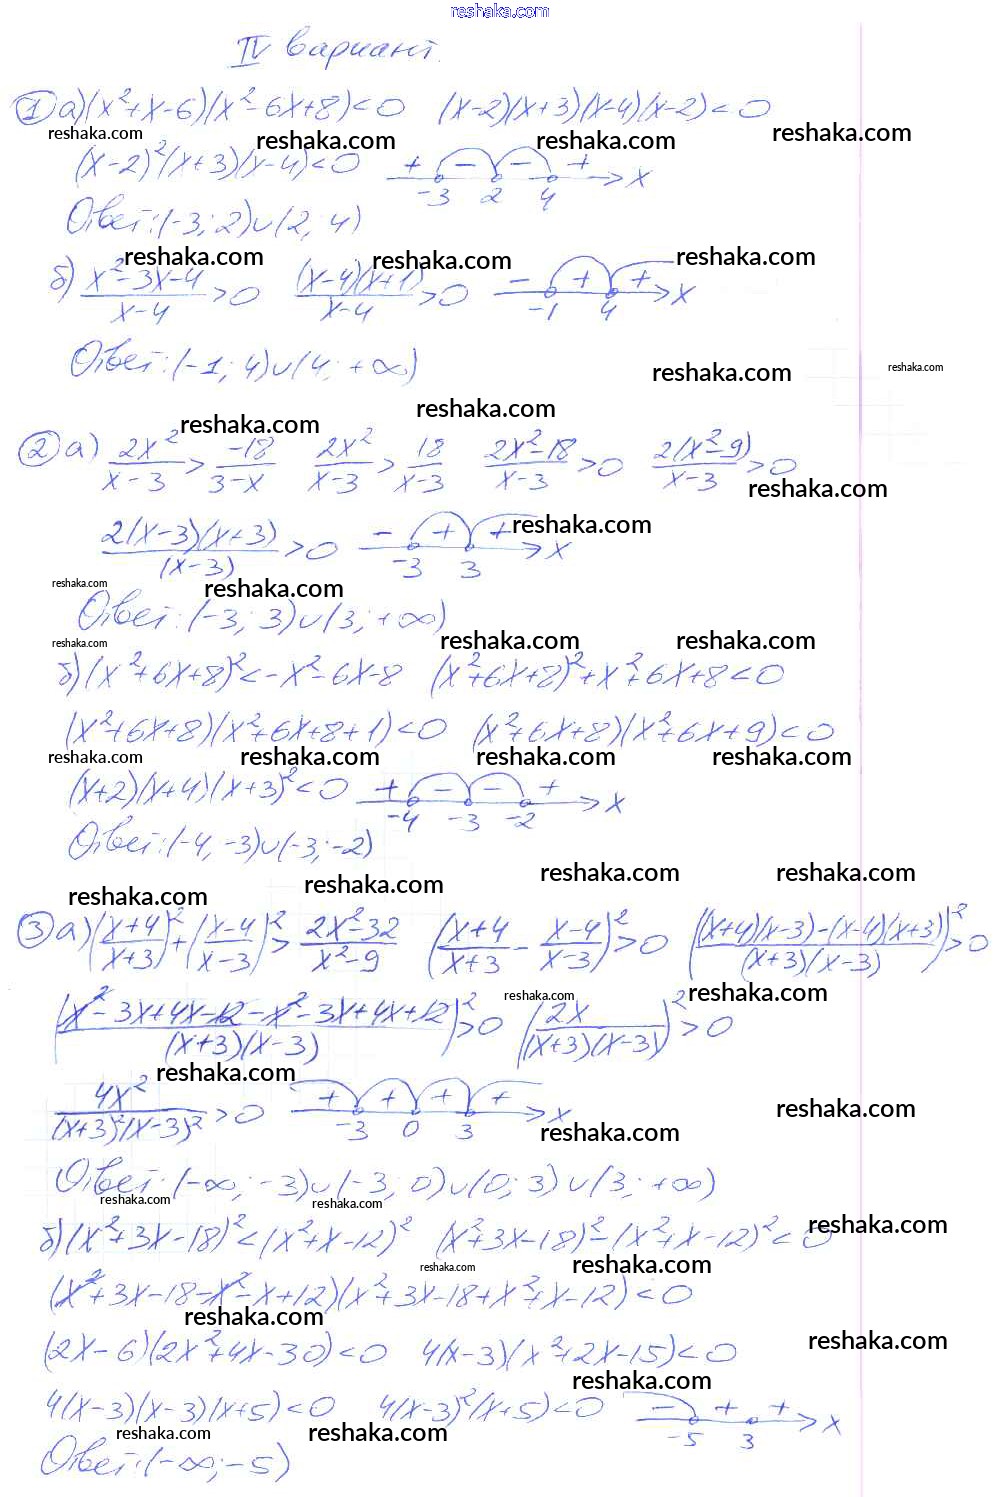 reshaka.com
IV вариант.
① а) (x²+x-6)(x²-6x+8)<0 (x-2)(x+3)(x-4)(x-2)<0
reshaka.com reshaka.com reshaka.com reshaka.com
(x-2)²(x+3)(x-4)<0 + - - + -3 2 4 x
Ответ: (-3; 2)∪(2; 4)
reshaka.com reshaka.com reshaka.com
б) (x²-3x-4)/(x-4)>0 ((x-4)(x+1))/(x-4)>0 - + + -1 4 x
Ответ: (-1; 4)∪(4; +∞)
reshaka.com reshaka.com
reshaka.com reshaka.com
② а) 2x²/(x-3) > -18/(3-x) 2x²/(x-3) > 18/(x-3) (2x²-18)/(x-3)>0 2(x²-9)/(x-3)>0
reshaka.com
2(x-3)(x+3)/(x-3)>0 - + + -3 3 x
reshaka.com
reshaka.com reshaka.com
Ответ: (-3; 3)∪(3; +∞)
reshaka.com reshaka.com reshaka.com
б) (x²+6x+8)²<-x²-6x-8 (x²+6x+8)²+x²+6x+8<0
(x²+6x+8)(x²+6x+8+1)<0 (x²+6x+8)(x²+6x+9)<0
reshaka.com reshaka.com reshaka.com reshaka.com
(x+2)(x+4)(x+3)²<0 + - - + -4 -3 -2 x
Ответ: (-4; -3)∪(-3; -2)
reshaka.com reshaka.com reshaka.com reshaka.com
③ а) ((x+4)/(x+3))²+((x-4)/(x-3))²>(2x²-32)/(x²-9) ((x+4)/(x+3) - (x-4)/(x-3))²>0 (((x+4)(x-3)-(x-4)(x+3))/((x+3)(x-3)))²>0
reshaka.com reshaka.com
((x²-3x+4x-12-x²-3x+4x+12)/((x+3)(x-3)))²>0 (2x/((x+3)(x-3)))²>0
reshaka.com
4x²/((x+3)²(x-3)²)>0 + + + + -3 0 3 x
reshaka.com reshaka.com
Ответ: (-∞; -3)∪(-3; 0)∪(0; 3)∪(3; +∞)
reshaka.com reshaka.com
б) (x²+3x-18)²<(x²+x-12)² (x²+3x-18)²-(x²+x-12)²<0
reshaka.com
reshaka.com reshaka.com
(x²+3x-18-x²-x+12)(x²+3x-18+x²+x-12)<0
reshaka.com
(2x-6)(2x²+4x-30)<0 4(x-3)(x²+2x-15)<0
reshaka.com
reshaka.com
4(x-3)(x-3)(x+5)<0 4(x-3)²(x+5)<0 - + + -5 3 x
reshaka.com reshaka.com
Ответ: (-∞; -5)